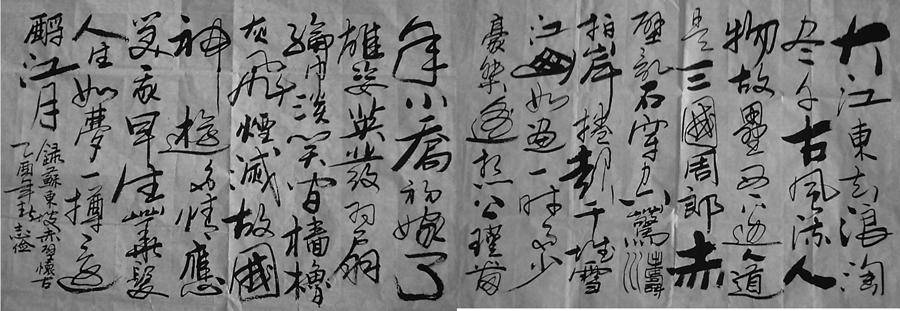 大江東去浪淘
盡千古風流人
物故壘西邊人道
是三國周郎赤
壁亂石穿空驚濤
拍岸捲起千堆雪
江山如畫一時多少
豪傑遙想公瑾當
年小喬初嫁了
雄姿英發羽扇
綸巾談笑間檣櫓
灰飛煙滅故國
神遊多情應
笑我早生華髮
人生如夢一樽還
酹江月
錄蘇東坡赤壁懷古
乙酉年秋